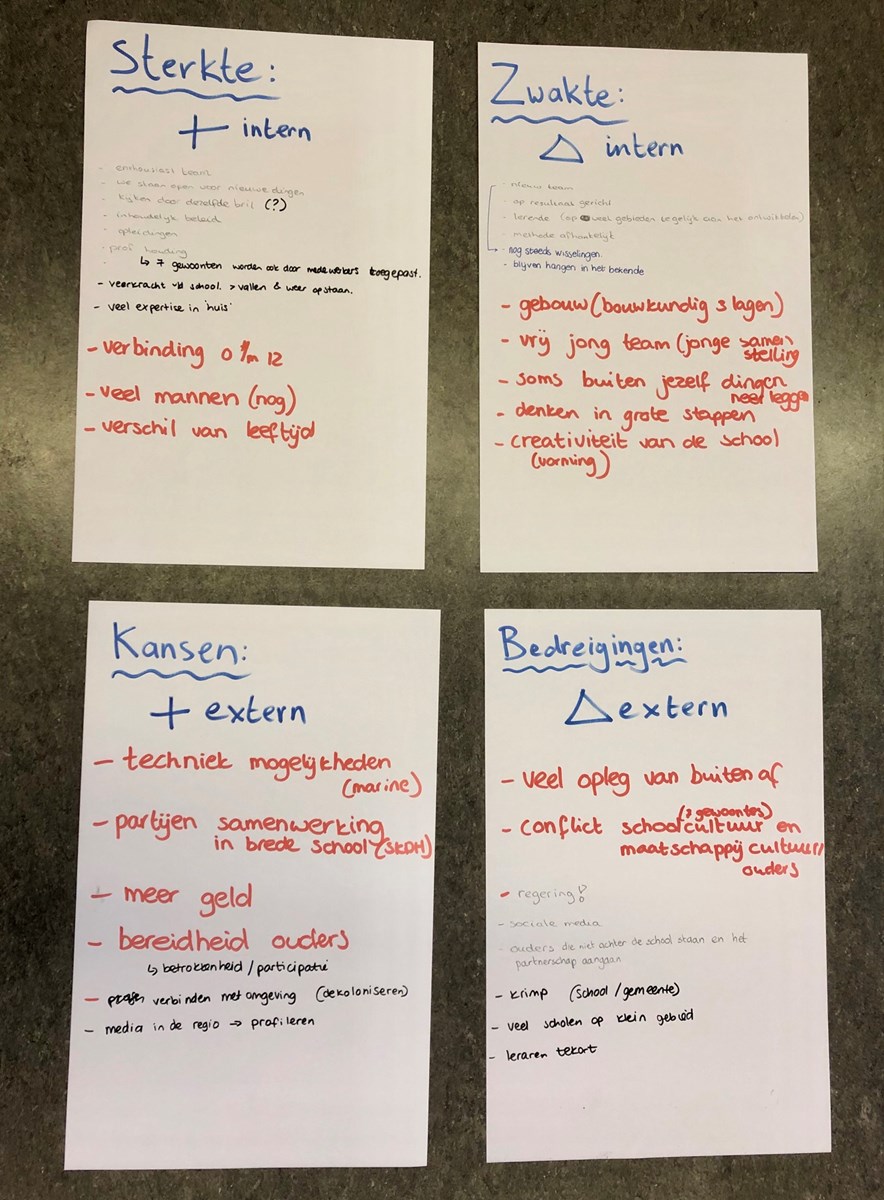 Sterkte:
+ intern
- enthousiast team
- we staan open voor nieuwe dingen
- kijken door dezelfde bril (?)
- inhoudelijk beleid
- opleidingen
- prof houding
↳ 7 gewoonten worden ook door medewerkers toegepast.
- veerkracht v/d school. > vallen & weer opstaan.
- veel expertise in 'huis'
- verbinding 0 t/m 12
- veel mannen (nog)
- verschil van leeftijd
Zwakte:
△ intern
- nieuw team
- op resultaat gericht
- lerende (op veel gebieden tegelijk aan het ontwikkelen)
- methode afhankelijk
- nog steeds wisselingen.
- blijven hangen in het bekende
- gebouw (bouwkundig 3 lagen)
- vrij jong team (jonge samen
stelling
- soms buiten jezelf dingen
neer leggen
- denken in grote stappen
- creativiteit van de school
(vorming)
Kansen:
+ extern
- techniek mogelijkheden
(marine)
- partijen samenwerking
in brede school (SKDH)
- meer geld
- bereidheid ouders
↳ betrokkenheid / participatie
- verbinden met omgeving (dekoloniseren)
- media in de regio → profileren
Bedreigingen:
△ extern
- veel opleg van buiten af
(7 gewoontes)
- conflict schoolcultuur en
maatschappij cultuur/
ouders
- regering!
- sociale media
- ouders die niet achter de school staan en het
partnerschap aangaan
- krimp (school / gemeente)
- veel scholen op klein gebied
- leraren tekort